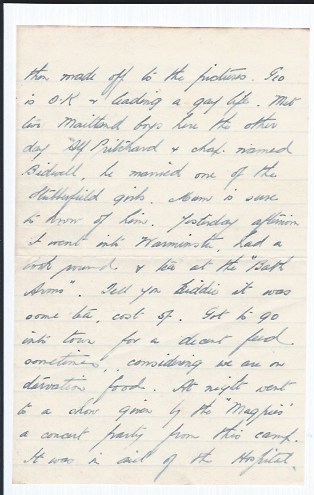 then made off to the pictures. Geo
is O.K & leading a gay life. Met
two Maitland boys here the other
day "Alf Pritchard & chap named
Bidwell, he married one of the
Stubbefield girls. Mum is sure
to know of him. Yesterday afternoon
I went into Warminster, had a
look round & tea at the "Bath
Arms". Tell you Eddie it was
some tea, cost 5/-. Got to go
into town for a decent feed
sometimes, considering we are on
starvation food. At night went
to a show given by the "Magpies"
a concert party from this camp.
It was in aid of the Hospital.